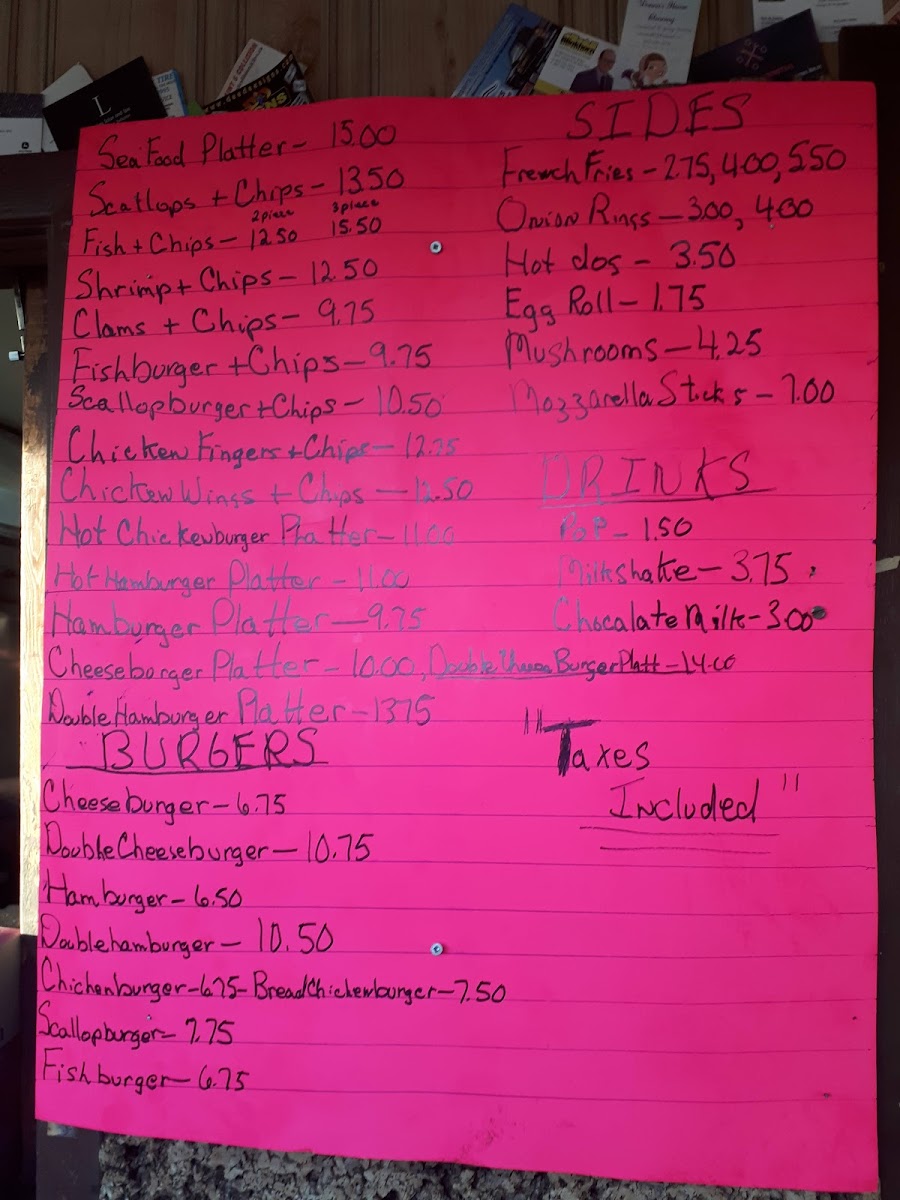 Sea Food Platter- 15.00
Scallops + Chips- 13.50
2 piece 3 piece
Fish + Chips- 12.50 15.50
Shrimp + Chips- 12.50
Clams + Chips- 9.75
Fishburger + Chips- 9.75
Scallopburger + Chips- 10.50
Chicken Fingers + Chips- 12.75
Chicken Wings + Chips- 12.50
Hot Chickenburger Platter- 11.00
Hot Hamburger Platter- 11.00
Hamburger Platter- 9.75
Cheeseborger Platter- 10.00, Double Cheese Burger Platt- 14.00
Double Hamburger Platter- 1375
BURGERS
Cheese burger- 6.75
Double Cheeseburger- 10.75
Hamburger- 6.50
Doublehamburger- 10.50
Chichenburger- 6.75- Bread Chickenburger- 7.50
Scallopburger- 7.75
Fishburger- 6.75
SIDES
French Fries- 2.75, 400, 550
Onion Rings- 300, 400
Hot dos- 3.50
Egg Roll- 1.75
Mushrooms- 4.25
Mozzarella Sticks- 7.00
DRINKS
POP- 1.50
Milkshake- 3.75
Chocalate Milk- 300
"Taxes
Included"